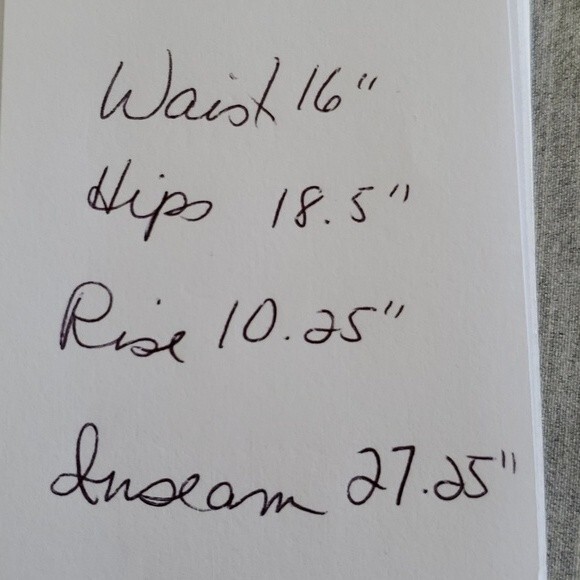 Waist 16"
Hips 18.5"
Rise 10.25"
Inseam 27.25"